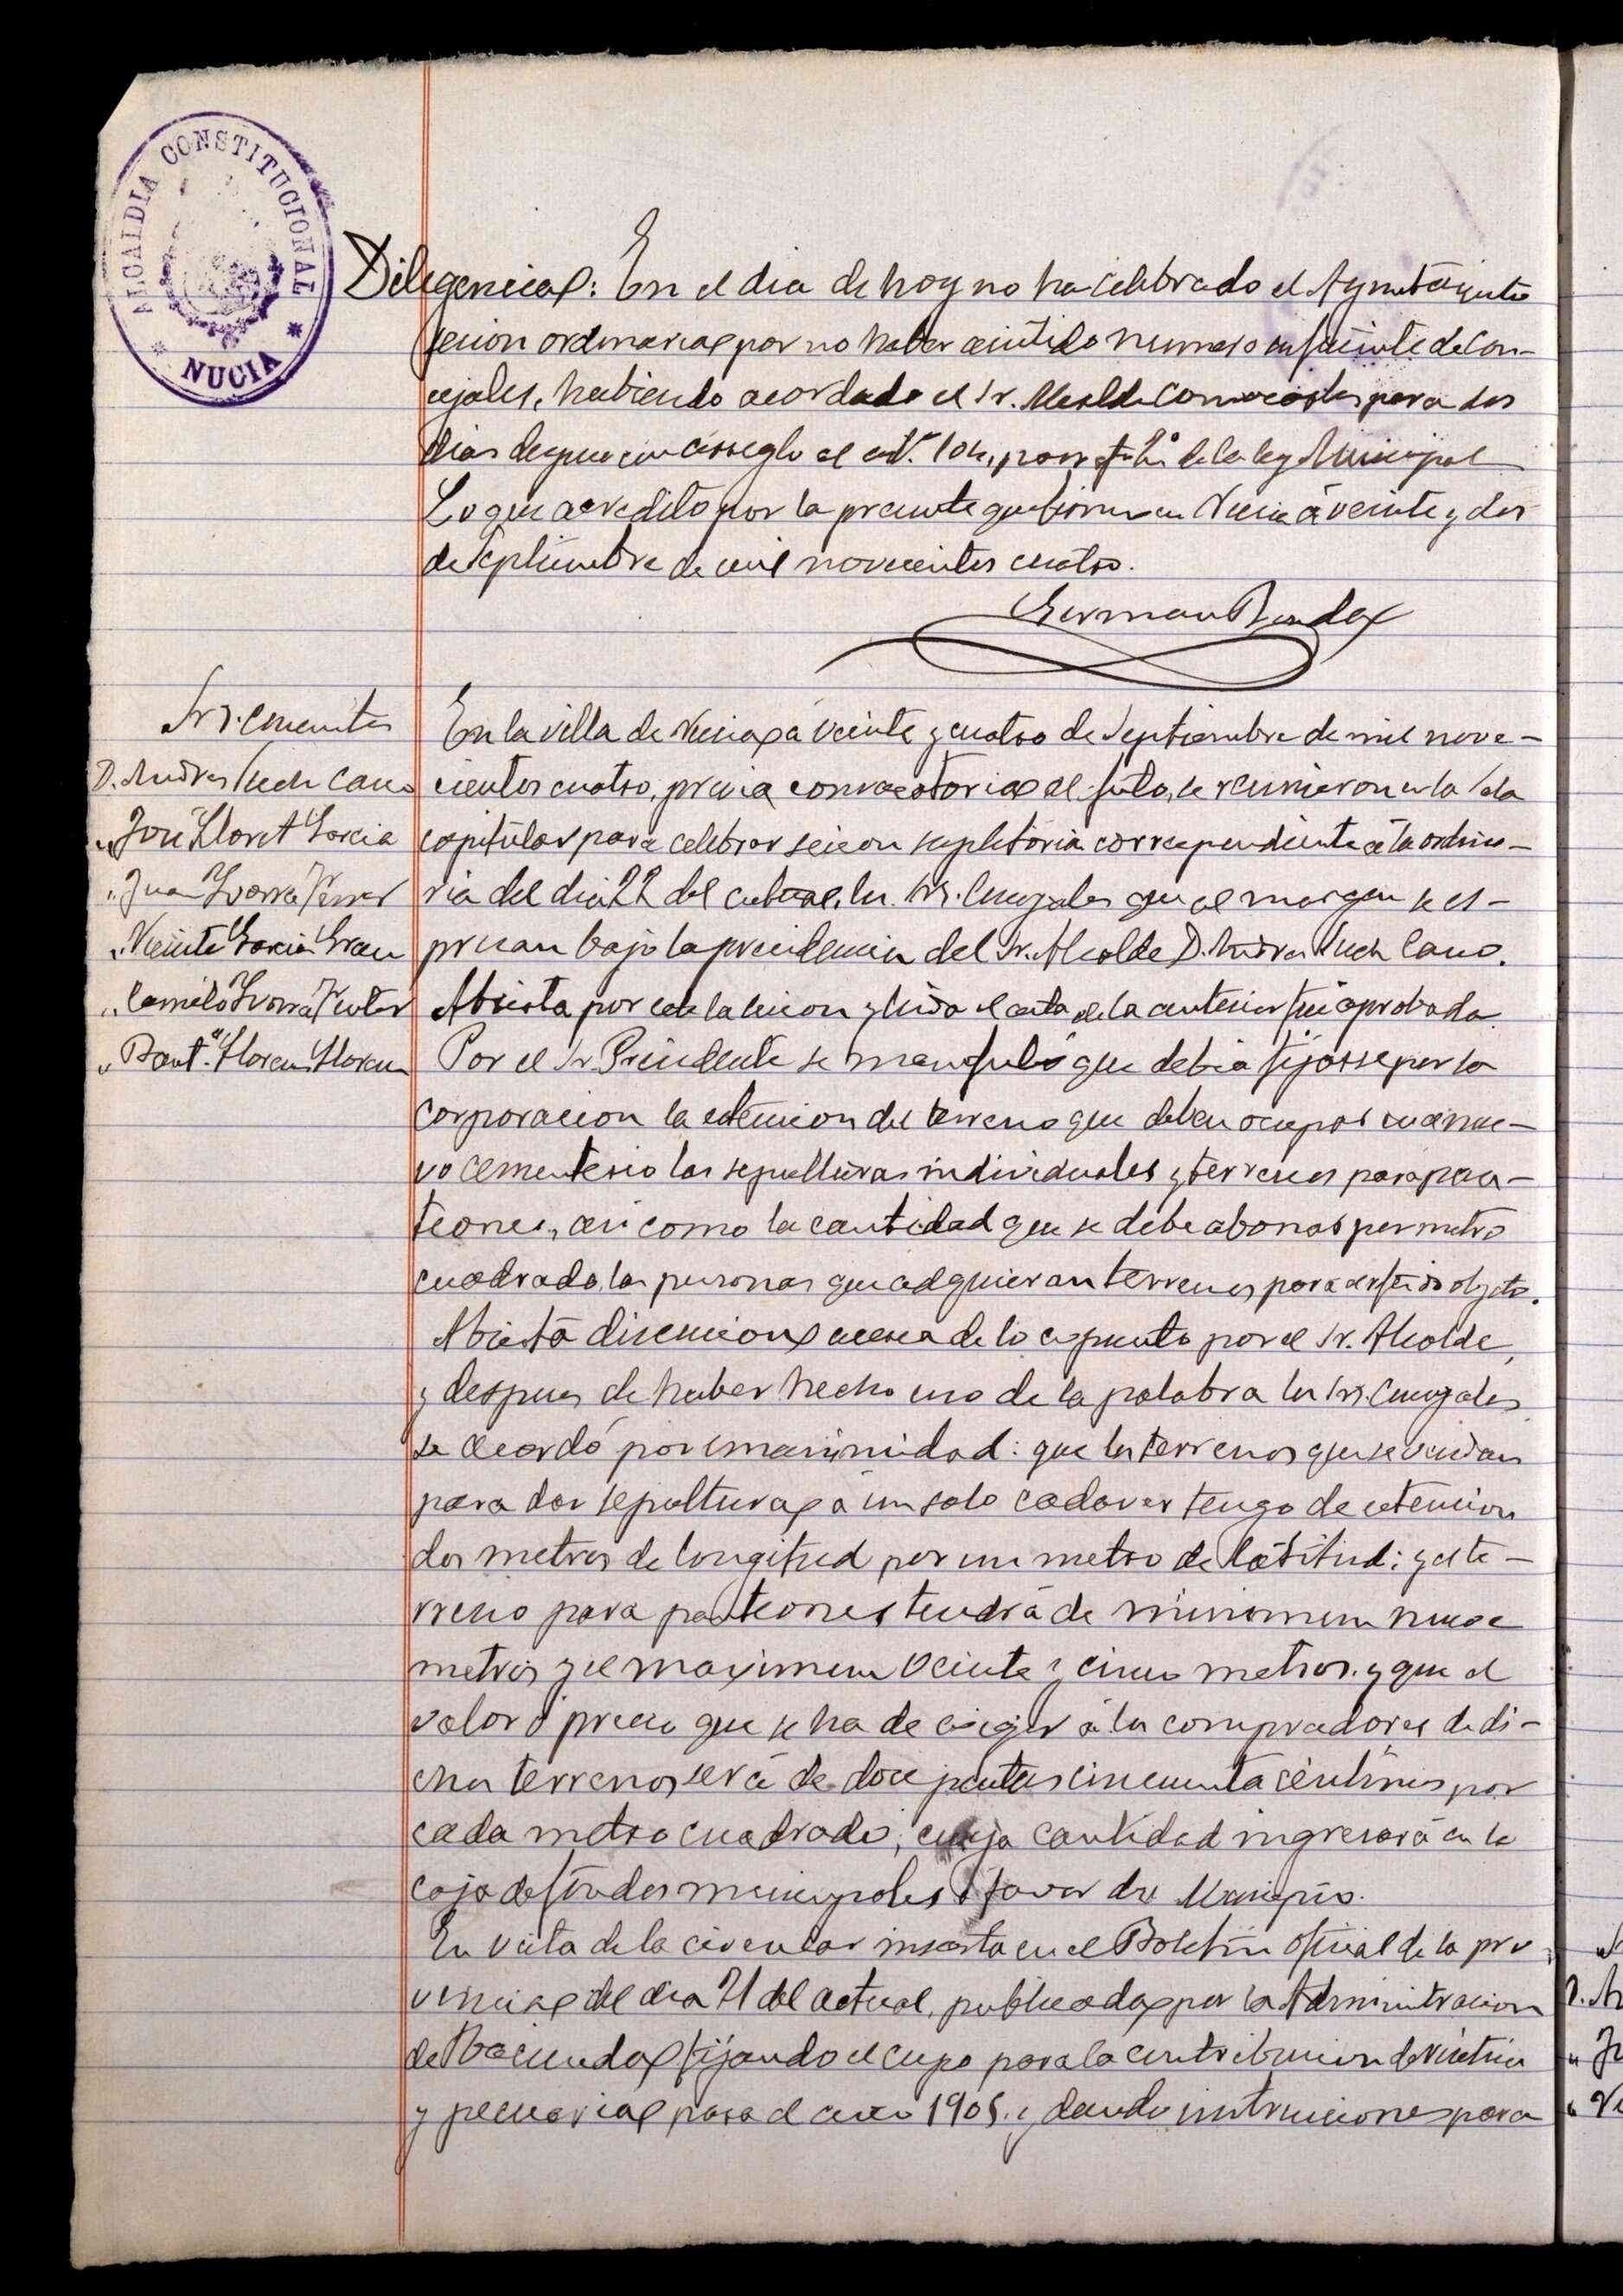 ALCALDIA CONSTITUCIONAL
* NUCIA *
Diligencia: En el dia de hoy no ha celebrado el Ayuntamiento
sesion ordinaria por no haber asistido numero suficiente de Con-
cejales, habiendo acordado el Sr. Alcalde convocarlos para dos
dias despues con arreglo al art. 104, parrafo 2º de la ley Municipal
Lo que acredito por la presente que firmo en Nucia á veinte y dos
de Septiembre de mil novecientos cuatro.
German Ronda
Srs. Concurrentes
D. Andres Such Cano
" José Lloret Garcia
" Juan Ivorra Ferrer
" Vicente Garcia Grau
" Camilo Ivorra Fuster
" Baut.ª Llorens Llorens
En la villa de Nucia á veinte y cuatro de Septiembre de mil nove-
cientos cuatro, previa convocatoria al efecto, se reunieron en la Sala
capitular para celebrar sesion supletoria correspondiente á la ordina-
ria del dia 22 del actual, los Srs. Concejales que al margen se es-
presan bajo la presidencia del Sr. Alcalde D. Andres Such Cano.
Abierta por este la sesion y leida el acta de la anterior fué aprobada.
Por el Sr Presidente se manifestó que debia fijarse por la
corporacion la estension del terreno que deben ocupar en el nue-
vo cementerio las sepulturas individuales y terrenos para pan-
teones, asi como la cantidad que se debe abonar por metro
cuadrado, las personas que adquieran terrenos para dicho objeto.
Abierta discusion acerca de lo espuesto por el Sr. Alcalde,
y despues de haber hecho uso de la palabra los Srs. Concejales
se acordó por unanimidad: que los terrenos que se vendan
para dar sepultura á un solo cadaver tenga de estension
dos metros de longitud por un metro de latitud: y el te-
rreno para panteones tendrá de minimum nueve
metros y el maximum veinte y cinco metros. y que el
valor ó precio que se ha de exigir á los compradores de di-
chos terrenos será de doce pesetas cincuenta céntimos por
cada metro cuadrado; cuya cantidad ingresará en la
caja de fondos municipales á favor del Municipio.
En vista de la circular inserta en el Boletin oficial de la pro-
vincia del dia 21 del actual, publicada por la Administracion
de Hacienda fijando el cupo para la contribucion de rústica
y pecuaria para el año 1905. y dando instrucciones para